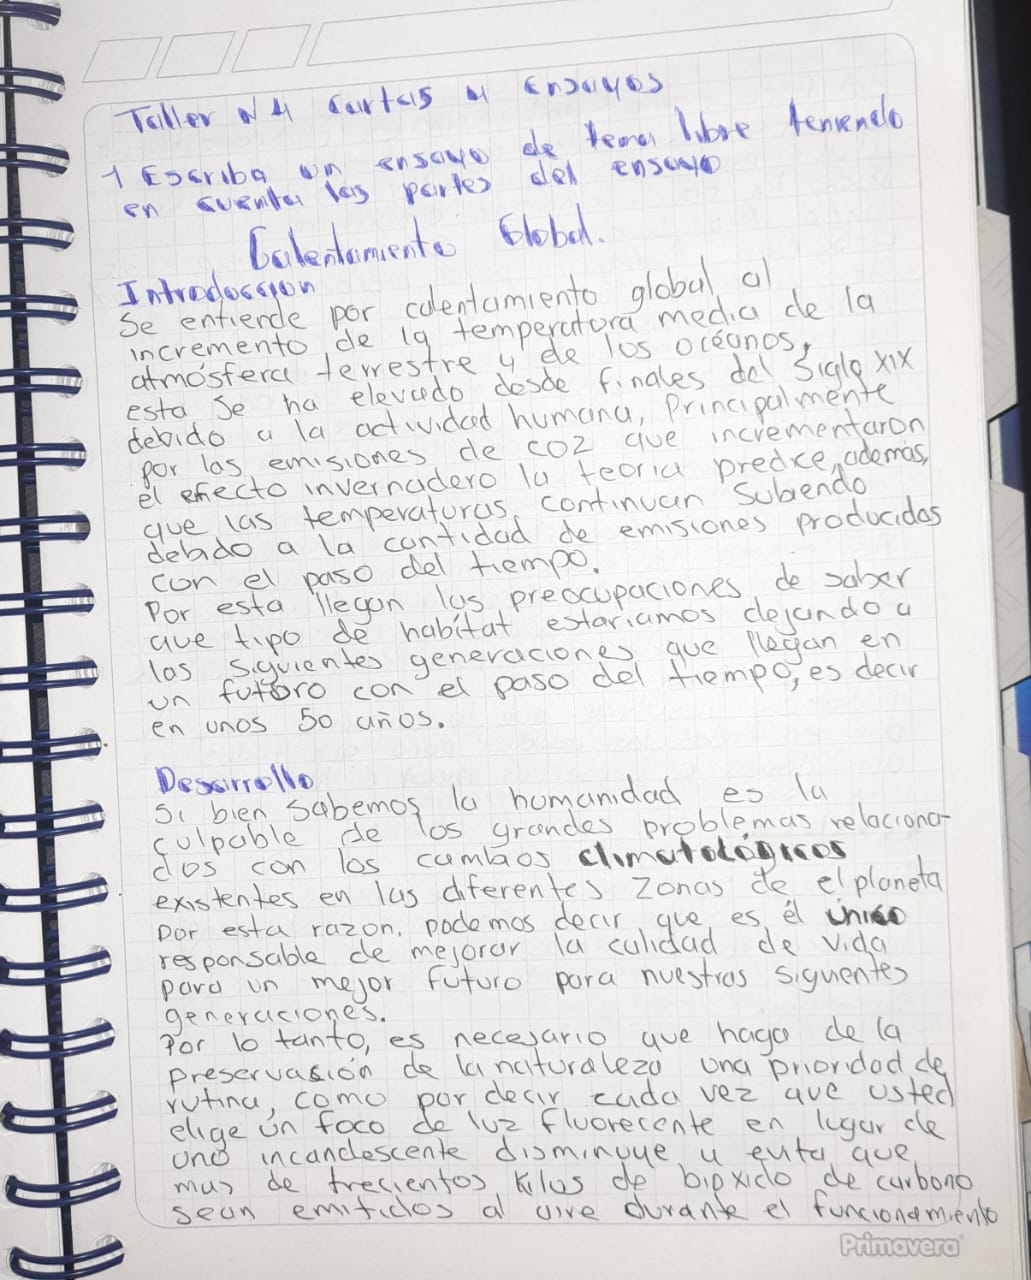 Taller N 4 cartas y Ensayos
1 Escriba un ensayo de tema libre teniendo
en cuenta las partes del ensayo
Calentamiento Global.
Introduccion
Se entiende por calentamiento global al
incremento de la temperatura media de la
atmósfera terrestre y de los océanos,
esta se ha elevado desde finales del Siglo XIX
debido a la actividad humana, Principalmente
por las emisiones de CO2 que incrementaron
el efecto invernadero la teoria predice, además,
que las temperaturas continuan Subiendo
debido a la cantidad de emisiones producidas
con el paso del tiempo.
Por esta llegan las preocupaciones de saber
que tipo de habítat estariamos dejando a
las siguientes generaciones que llegan en
un futuro con el paso del tiempo, es decir
en unos 50 años.
Desarrollo
Si bien sabemos la humanidad es la
culpable de los grandes problemas relaciona-
dos con los cambios climatológicos
existentes en las diferentes zonas de el planeta
por esta razon, podemos decir que es él único
responsable de mejorar la calidad de vida
para un mejor futuro para nuestras siguientes
generaciones.
Por lo tanto, es necesario que haga de la
preservasión de la naturaleza una prioridad de
rutina, como por decir cada vez que usted
elige un foco de luz fluorecente en lugar de
uno incandescente disminuye y evita que
mas de trecientos kilos de bioxido de carbono
sean emitidos al aire durante el funcionamiento
Primavera